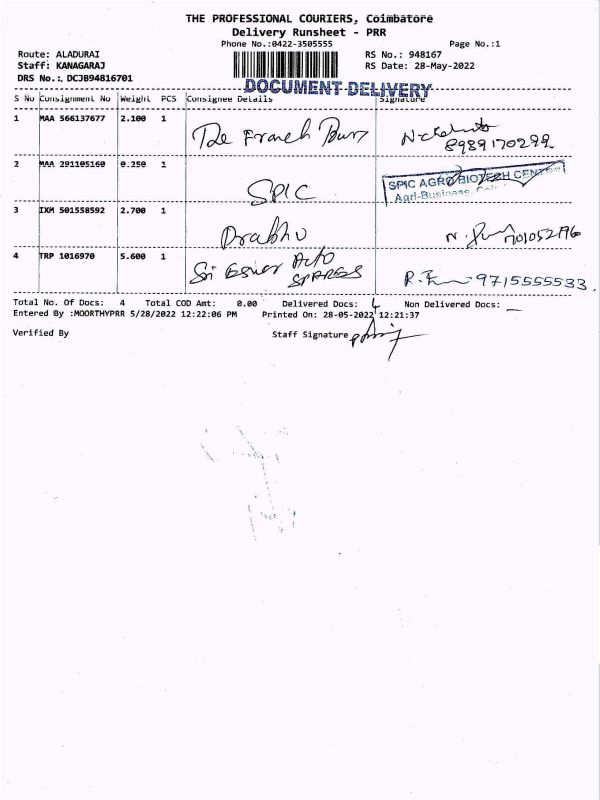 THE PROFESSIONAL COURIERS, Coimbatore
Delivery Runsheet - PRR
Phone No.:0422-3505555 Page No.:1
Route: ALADURAI RS No.: 948167
Staff: KANAGARAJ RS Date: 28-May-2022
DRS No.: DCJB94816701
DOCUMENT DELIVERY
S No Consignment No Weight PCS Consignee Details Signature
1 MAA 566137677 2.100 1 The French
8989170299
2 MAA 291105160 0.250 1 SPIC SPIC AGRO BIOTECH CENTRE
Agri-Business
3 IXM 501558592 2.700 1 Prabhu N.
4 TRP 1016970 5.600 1 Sri Eswar Auto
SPARES R. 9715555533
Total No. Of Docs: 4 Total COD Amt: 0.00 Delivered Docs: 4 Non Delivered Docs: —
Entered By :MOORTHYPRR 5/28/2022 12:22:06 PM Printed On: 28-05-2022 12:21:37
Verified By Staff Signature